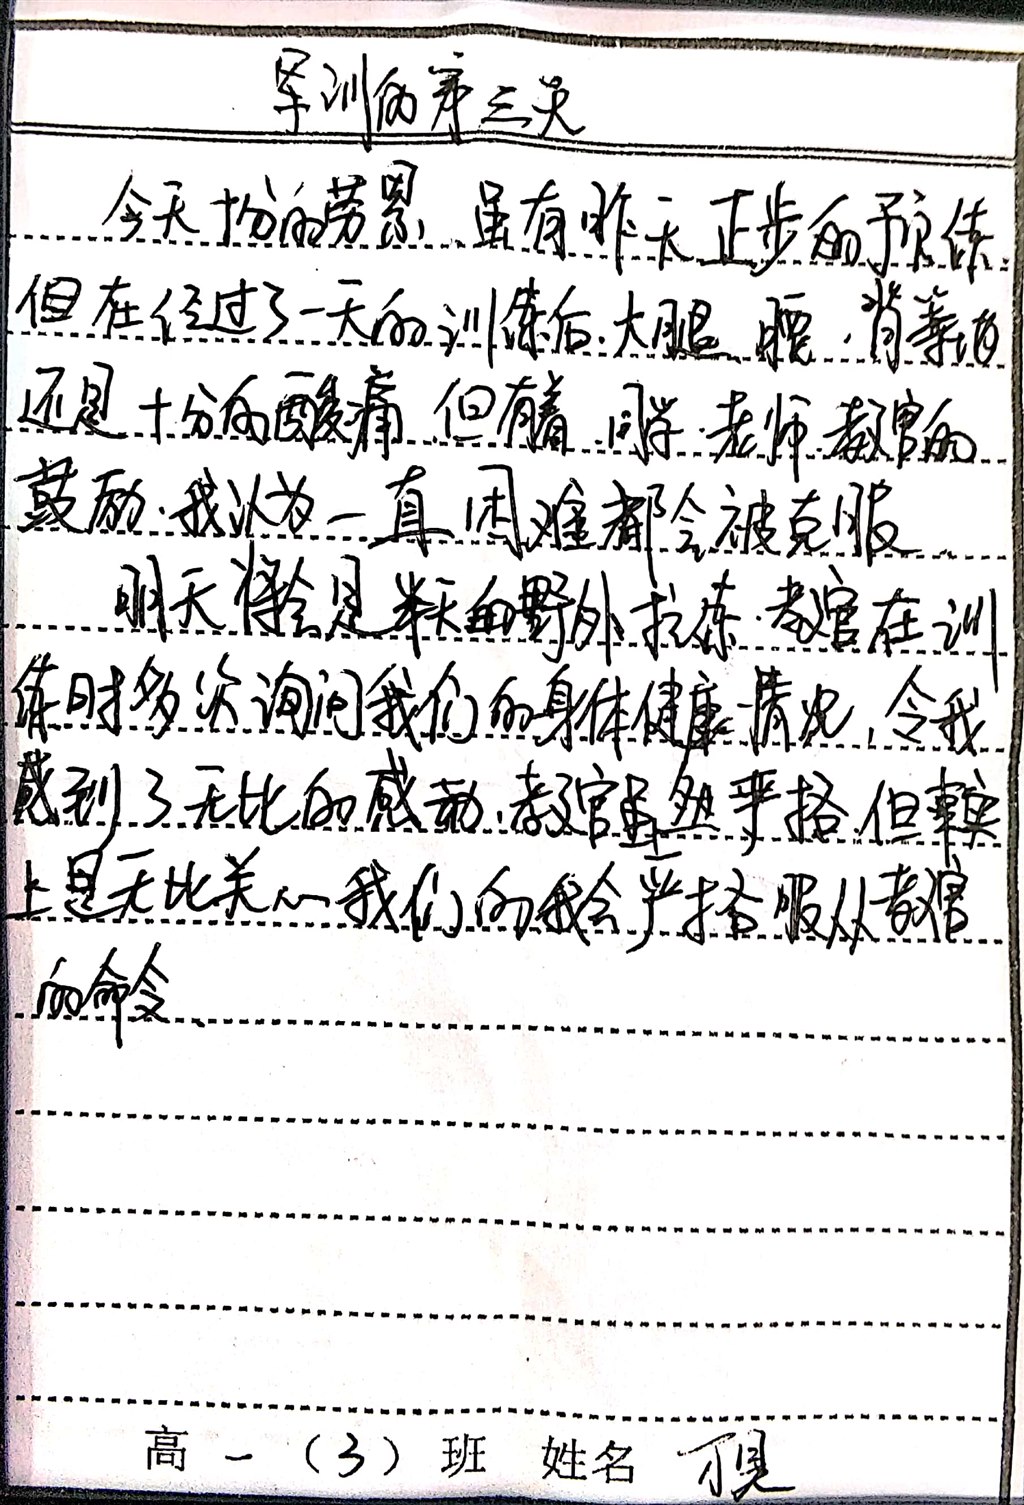 军训的第三天
今天十分的劳累、虽有昨天正步的预练
但在经过了一天的训练后.大腿、腰、背等的
还是十分的酸痛.但有着同学.老师.教官的
鼓励.我认为一直困难都会被克服
明天将会是半天的野外拉练.教官在训
练时多次询问我们的身体健康情况,令我
感到了无比的感动.教官虽然严格.但事实
上是无比关心我们的我会严格服从教官
的命令、
高一(3)班 姓名